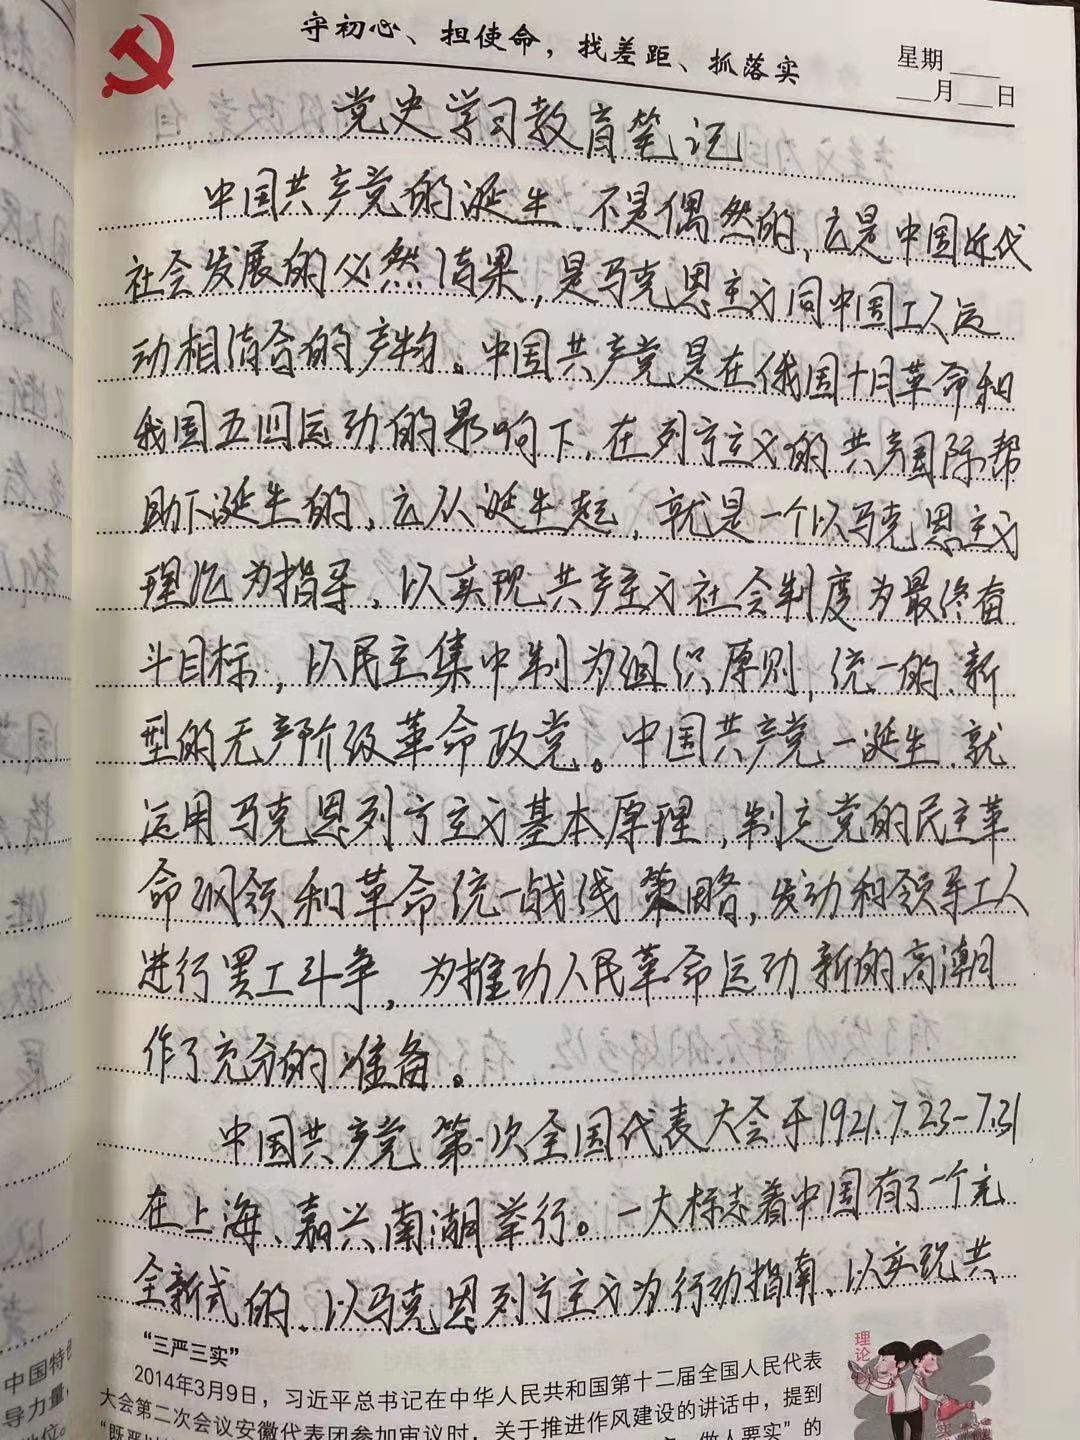 守初心、担使命，找差距、抓落实
星期
月 日
党史学习教育笔记
中国共产党的诞生，不是偶然的，它是中国近代
社会发展的必然结果，是马克思主义同中国工人运
动相结合的产物。中国共产党是在俄国十月革命和
我国五四运动的影响下，在列宁主义的共产国际帮
助下诞生的，它从诞生起，就是一个以马克思主义
理论为指导，以实现共产主义社会制度为最终奋
斗目标，以民主集中制为组织原则，统一的、新
型的无产阶级革命政党。中国共产党一诞生，就
运用马克思列宁主义基本原理，制定党的民主革
命纲领和革命统一战线策略，发动和领导工人
进行罢工斗争，为推动人民革命运动新的高潮
作了充分的准备。
中国共产党第一次全国代表大会于1921.7.23-7.31
在上海、嘉兴南湖举行。一大标志着中国有了一个完
全新式的、以马克思列宁主义为行动指南、以实现共
“三严三实”
2014年3月9日，习近平总书记在中华人民共和国第十二届全国人民代表
大会第二次会议安徽代表团参加审议时，关于推进作风建设的讲话中，提到
做人要实”的
理论
中国特色
导力量，
地位。